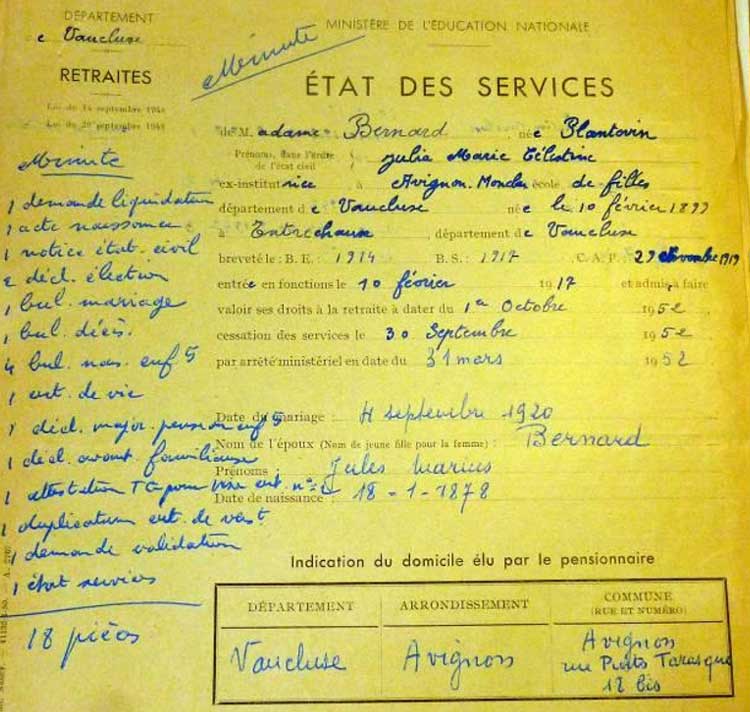 DÉPARTEMENT
de Vaucluse
RETRAITES
Loi du 14 septembre 1948
Loi du 20 septembre 1948
Minute
1 demande liquidation
1 acte naissance
1 notice état civil
2 décl. élection
1 bul. mariage
1 bul. décès.
4 bul. nais. enf S
1 cert. de vie
1 décl. major. pension enf S
1 décl. avant. familiaux
1 attestation TG pour
1 duplicatum cert. de vers t
1 demande validation
1 état services
18 pièces
Minute
MINISTÈRE DE L'ÉDUCATION NATIONALE
ÉTAT DES SERVICES
de Madame Bernard, née Plantevin
Prénoms, dans l'ordre
de l'état civil
Julia Marie Célestine
ex-institutrice à Avignon. Monclar école de filles
département de Vaucluse née le 10 février 1899
à Entrechaux département de Vaucluse
breveté le : B. E. : 1914 B. S. : 1917 C. A. P. : 29 Novembre 1919
entrée en fonctions le 10 février 1917 et admis à faire
valoir ses droits à la retraite à dater du 1er Octobre 1952
cessation des services le 30 Septembre 1952
par arrêté ministériel en date du 31 mars 1952
Date du mariage : 4 septembre 1920
Nom de l'époux (Nom de jeune fille pour la femme) : Bernard
Prénoms : Jules Marius
Date de naissance : 18-1-1878
Indication du domicile élu par le pensionnaire
DÉPARTEMENT ARRONDISSEMENT COMMUNE
(RUE ET NUMÉRO)
Vaucluse Avignon Avignon
rue Puits Tarasque
18 bis